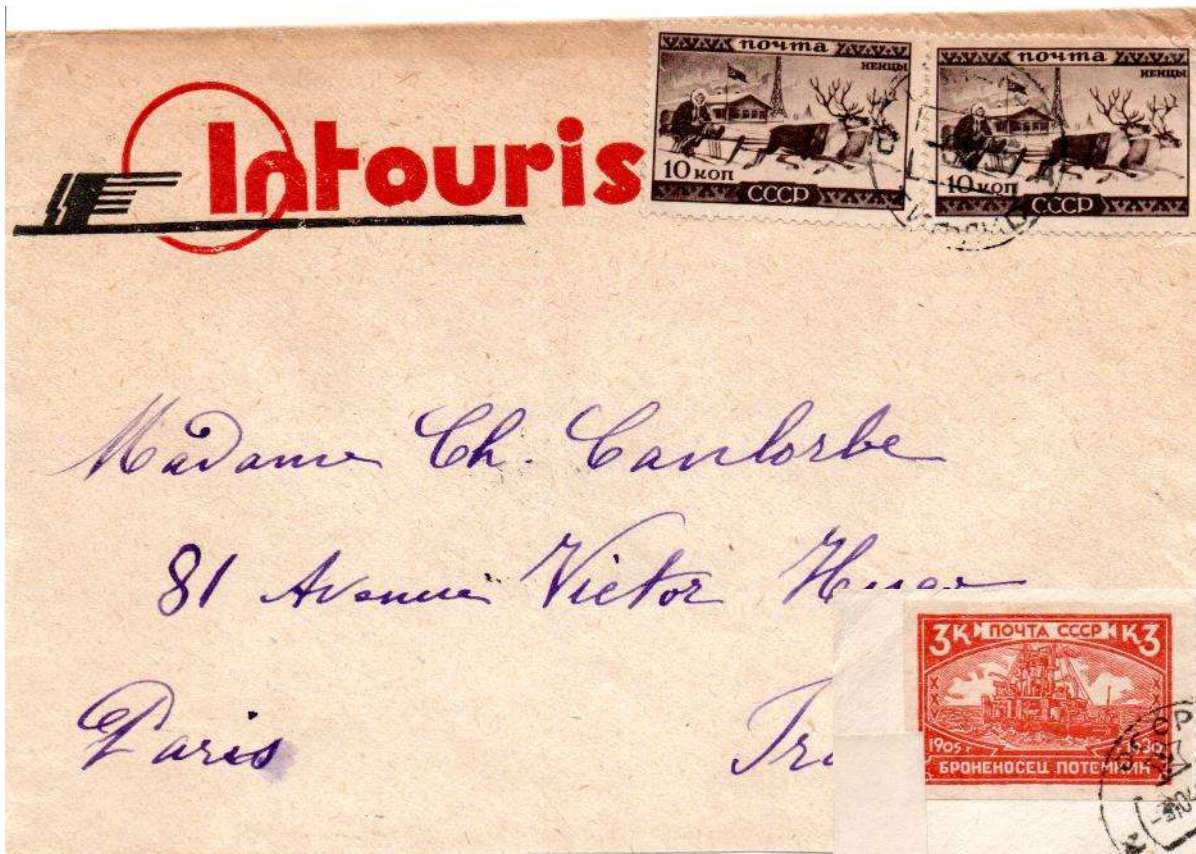 Intouris
почта
ненцы
10 коп
СССР
почта
ненцы
10 коп
СССР
Madame Ch. Canlorbe
81 Avenue Victor Hugo
Paris
3К ПОЧТА СССР К3
1905 г. 1930
БРОНЕНОСЕЦ ПОТЕМКИН